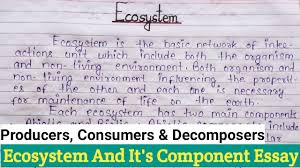 Ecosystem
Ecosystem is the basic network of inter-
actions unit which include both the organism
and non-living environment. Both organism and
non-living environment influencing the properti-
es of the other and each one is necessary
for maintenance of life on the earth.
Each ecosystem has two main components
Producers, Consumers & Decomposers
Ecosystem And It's Component Essay